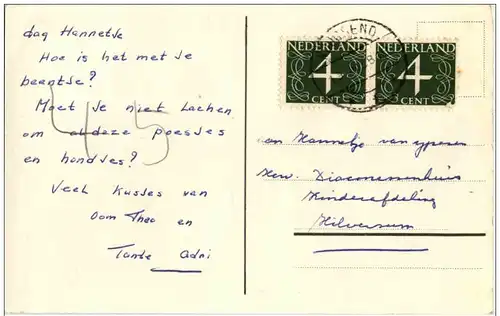 dag Hannetje
Hoe is het met je
beentje?
Moet je niet lachen
om al deze poesjes
en hondjes?
Veel kusjes van
Oom Theo en
Tante Adri
45
NEDERLAND NEDERLAND
4 4
CENT CENT
aan Hannetje van
Ned. Diaconessenhuis
Kinderafdeling
Hilversum